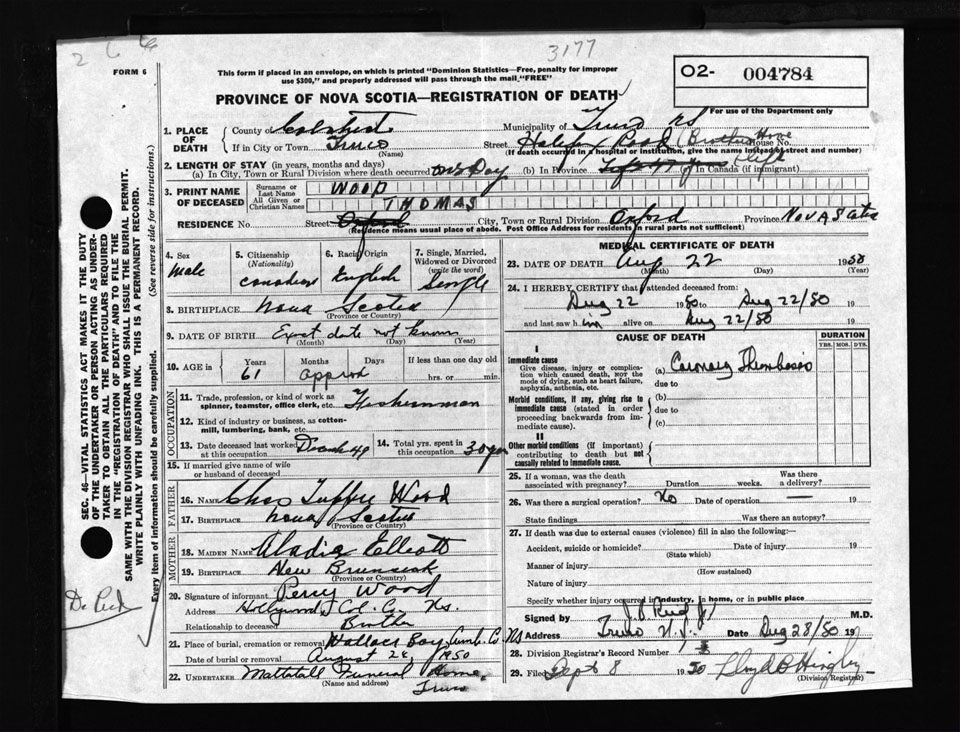 2 6 6
3177
FORM 6
This form if placed in an envelope, on which is printed "Dominion Statistics—Free, penalty for improper
use $300," and properly addressed will pass through the mail "FREE"
02- 004784
PROVINCE OF NOVA SCOTIA—REGISTRATION OF DEATH
For use of the Department only
1. PLACE OF DEATH
County of Colchester
Municipality of Truro NS
If in City or Town Truro (Name)
Street Halifax Road (Brother Home House No.
(If death occurred in a hospital or institution, give the name instead of street and number)
2. LENGTH OF STAY (in years, months and days)
(a) In City, Town or Rural Division where death occurred one Day (b) In Province Life in Canada (if immigrant)
3. PRINT NAME OF DECEASED
Surname or Last Name WOOD
All Given or Christian Names THOMAS
RESIDENCE No. Street Oxford City, Town or Rural Division Oxford Province Nova Scotia
(Residence means usual place of abode. Post Office Address for residents in rural parts not sufficient)
4. Sex Male
5. Citizenship (Nationality) Canadian
6. Racial Origin English
7. Single, Married, Widowed or Divorced (write the word) Single
8. BIRTHPLACE Nova Scotia
(Province or Country)
9. DATE OF BIRTH Exact date not known
(Month) (Day) (Year)
10. AGE in Years 61 Months Days approx If less than one day old hrs. or min.
OCCUPATION
11. Trade, profession, or kind of work as spinner, teamster, office clerk, etc. Fisherman
12. Kind of industry or business, as cotton-mill, lumbering, bank, etc.
13. Date deceased last worked at this occupation Dec 49
14. Total yrs. spent in this occupation 30 yrs
15. If married give name of wife or husband of deceased
FATHER
16. NAME Chas Tuffts Wood
17. BIRTHPLACE Nova Scotia
(Province or Country)
MOTHER
18. MAIDEN NAME Elliott
19. BIRTHPLACE New Brunswick
(Province or Country)
20. Signature of informant Percy Wood
Address Col. Co. Ns.
Relationship to deceased Brother
21. Place of burial, cremation or removal Wallace Bay Cumb. Co. NS
Date of burial or removal August 1950
22. UNDERTAKER Mattatall Funeral Home,
(Name and address) Truro
MEDICAL CERTIFICATE OF DEATH
23. DATE OF DEATH Aug 22 1950
(Month) (Day) (Year)
24. I HEREBY CERTIFY that I attended deceased from:
Aug 22 1950 to Aug 22/50 19
and last saw him alive on Aug 22/50 19
CAUSE OF DEATH
DURATION
YRS. MOS. DYS.
I
Immediate cause
Give disease, injury or complication which caused death, not the mode of dying, such as heart failure, asphyxia, asthenia, etc.
(a) Coronary Thrombosis
due to
Morbid conditions, if any, giving rise to immediate cause (stated in order proceeding backwards from immediate cause).
(b)
due to
(c)
II
Other morbid conditions (if important) contributing to death but not causally related to immediate cause.
25. If a woman, was the death associated with pregnancy? Duration weeks. Was there a delivery?
26. Was there a surgical operation? No Date of operation —
State findings Was there an autopsy?
27. If death was due to external causes (violence) fill in also the following:
Accident, suicide or homicide? Date of injury 19
(State which)
Manner of injury
(How sustained)
Nature of injury
Specify whether injury occurred in industry, in home, or in public place
Signed by M.D.
Address Truro N.S. Date Aug 28/50 19
28. Division Registrar's Record Number
29. Filed Sept 8 1950
(Division Registrar)
SEC. 46—VITAL STATISTICS ACT MAKES IT THE DUTY
OF THE UNDERTAKER OR PERSON ACTING AS UNDER-
TAKER TO OBTAIN ALL THE PARTICULARS REQUIRED
IN THE "REGISTRATION OF DEATH" AND TO FILE THE
SAME WITH THE DIVISION REGISTRAR WHO SHALL ISSUE THE BURIAL PERMIT.
WRITE PLAINLY WITH UNFADING INK. THIS IS A PERMANENT RECORD.
Every item of information should be carefully supplied. (See reverse side for instructions.)
Dr Reid